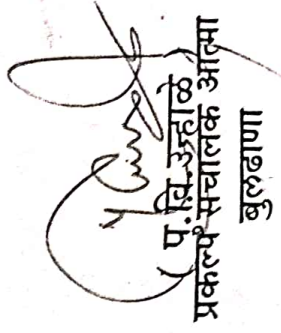 ( प.वि.उन्हाळे )
प्रकल्प संचालक आत्मा
बुलढाणा